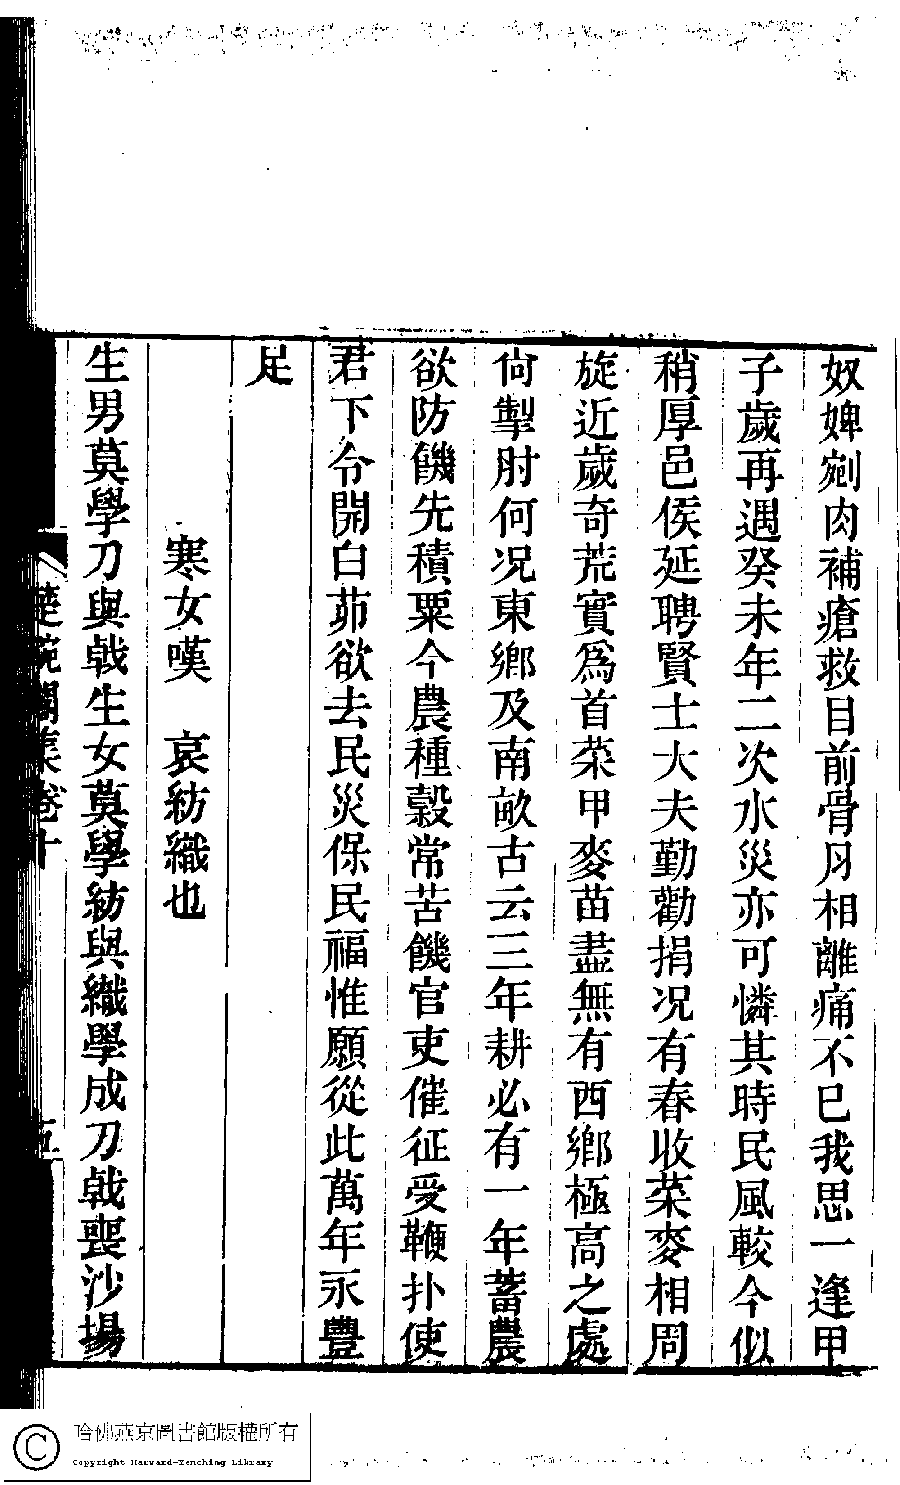 奴婢剜肉補瘡救目前骨月相離痛不已我思一逢甲
子歲再遇癸未年二次水災亦可憐其時民風較今似
稍厚邑侯延聘賢士大夫勤勸捐况有春收菜麥相周
旋近歲奇荒實爲首菜甲麥苗盡無有西鄉極高之處
尙掣肘何况東鄉及南畝古云三年耕必有一年蓄農
欲防饑先積粟今農種穀常苦饑官吏催征受鞭扑使
君下令開白茆欲去民災保民福惟願從此萬年永豐
足
寒女嘆 哀紡織也
生男莫學刀與戟生女莫學紡與織學成刀戟喪沙場
卷十
五
哈佛燕京圖書館版權所有
Copyright Harvard-Yenching Library